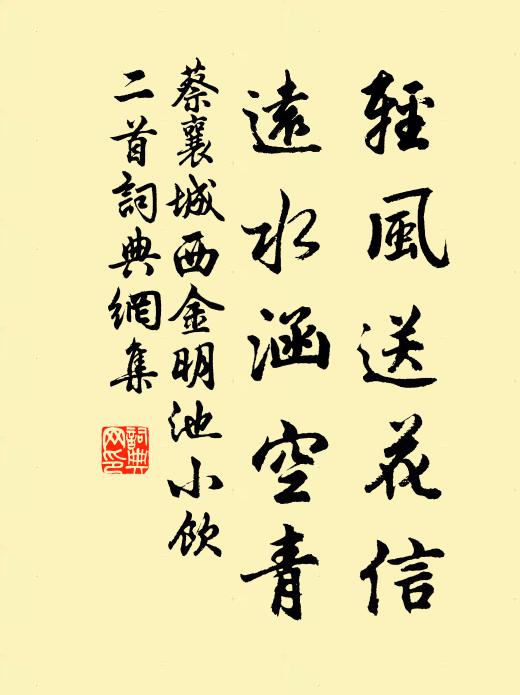 輕風送花信
遠水涵空青
蔡襄城西金明池小飲
二首詞典網集
詞典
网印